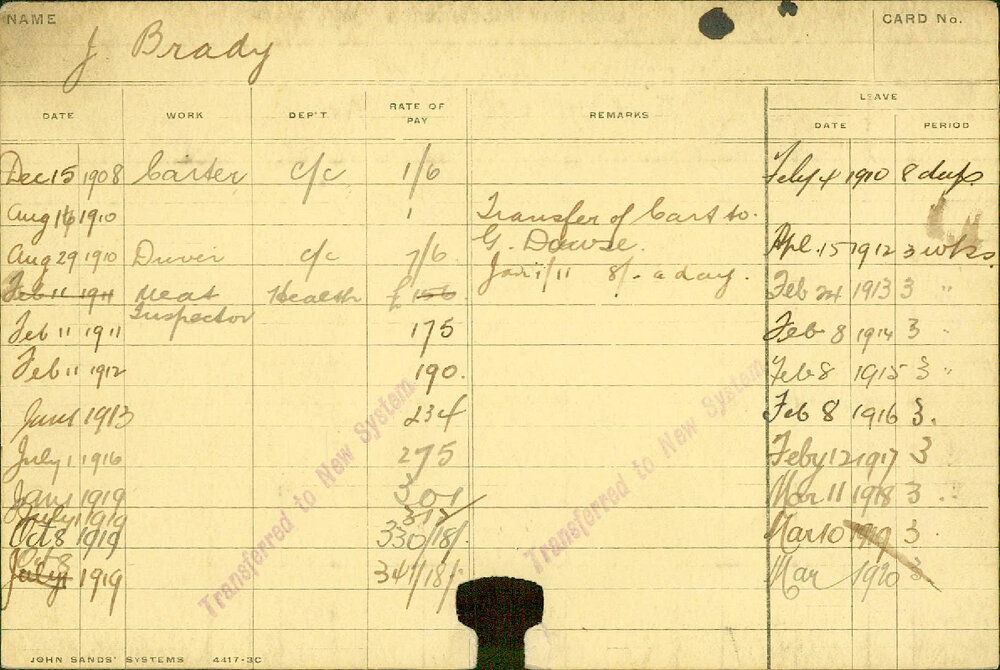 NAME
J Brady
CARD No.
DATE WORK DEP'T RATE OF PAY REMARKS LEAVE
DATE PERIOD
Dec 15 1908 Carter c/c 1/6 Feby 4 1910 8 days
Aug 16 1910 1 Transfer of Cart to.
G. Dowse.
Aug 29 1910 Driver c/c 7/6 Apl. 15 1912 3 wks.
Jan 1/11 8/- a day.
Feb 11 1911 Meat Health £ 156 Feb 24 1913 3 "
Inspector
Feb 11 1911 175 Feb 8 1914 3 "
Feb 11 1912 190. Feb 8 1915 3 "
Jan 1 1913 234 Feb 8 1916 3.
July 1 1916 275 Feby 12 1917 3
Jan 1 1919 301 Mar 11 1918 3 "
July 1 1919 312
Oct 8 1919 330/18/- Mar 10 1919 3
Oct 8
July 1 1919 341/18/- Mar 1920 3
Transferred to New System
Transferred to New System
JOHN SANDS' SYSTEMS 4417-3C